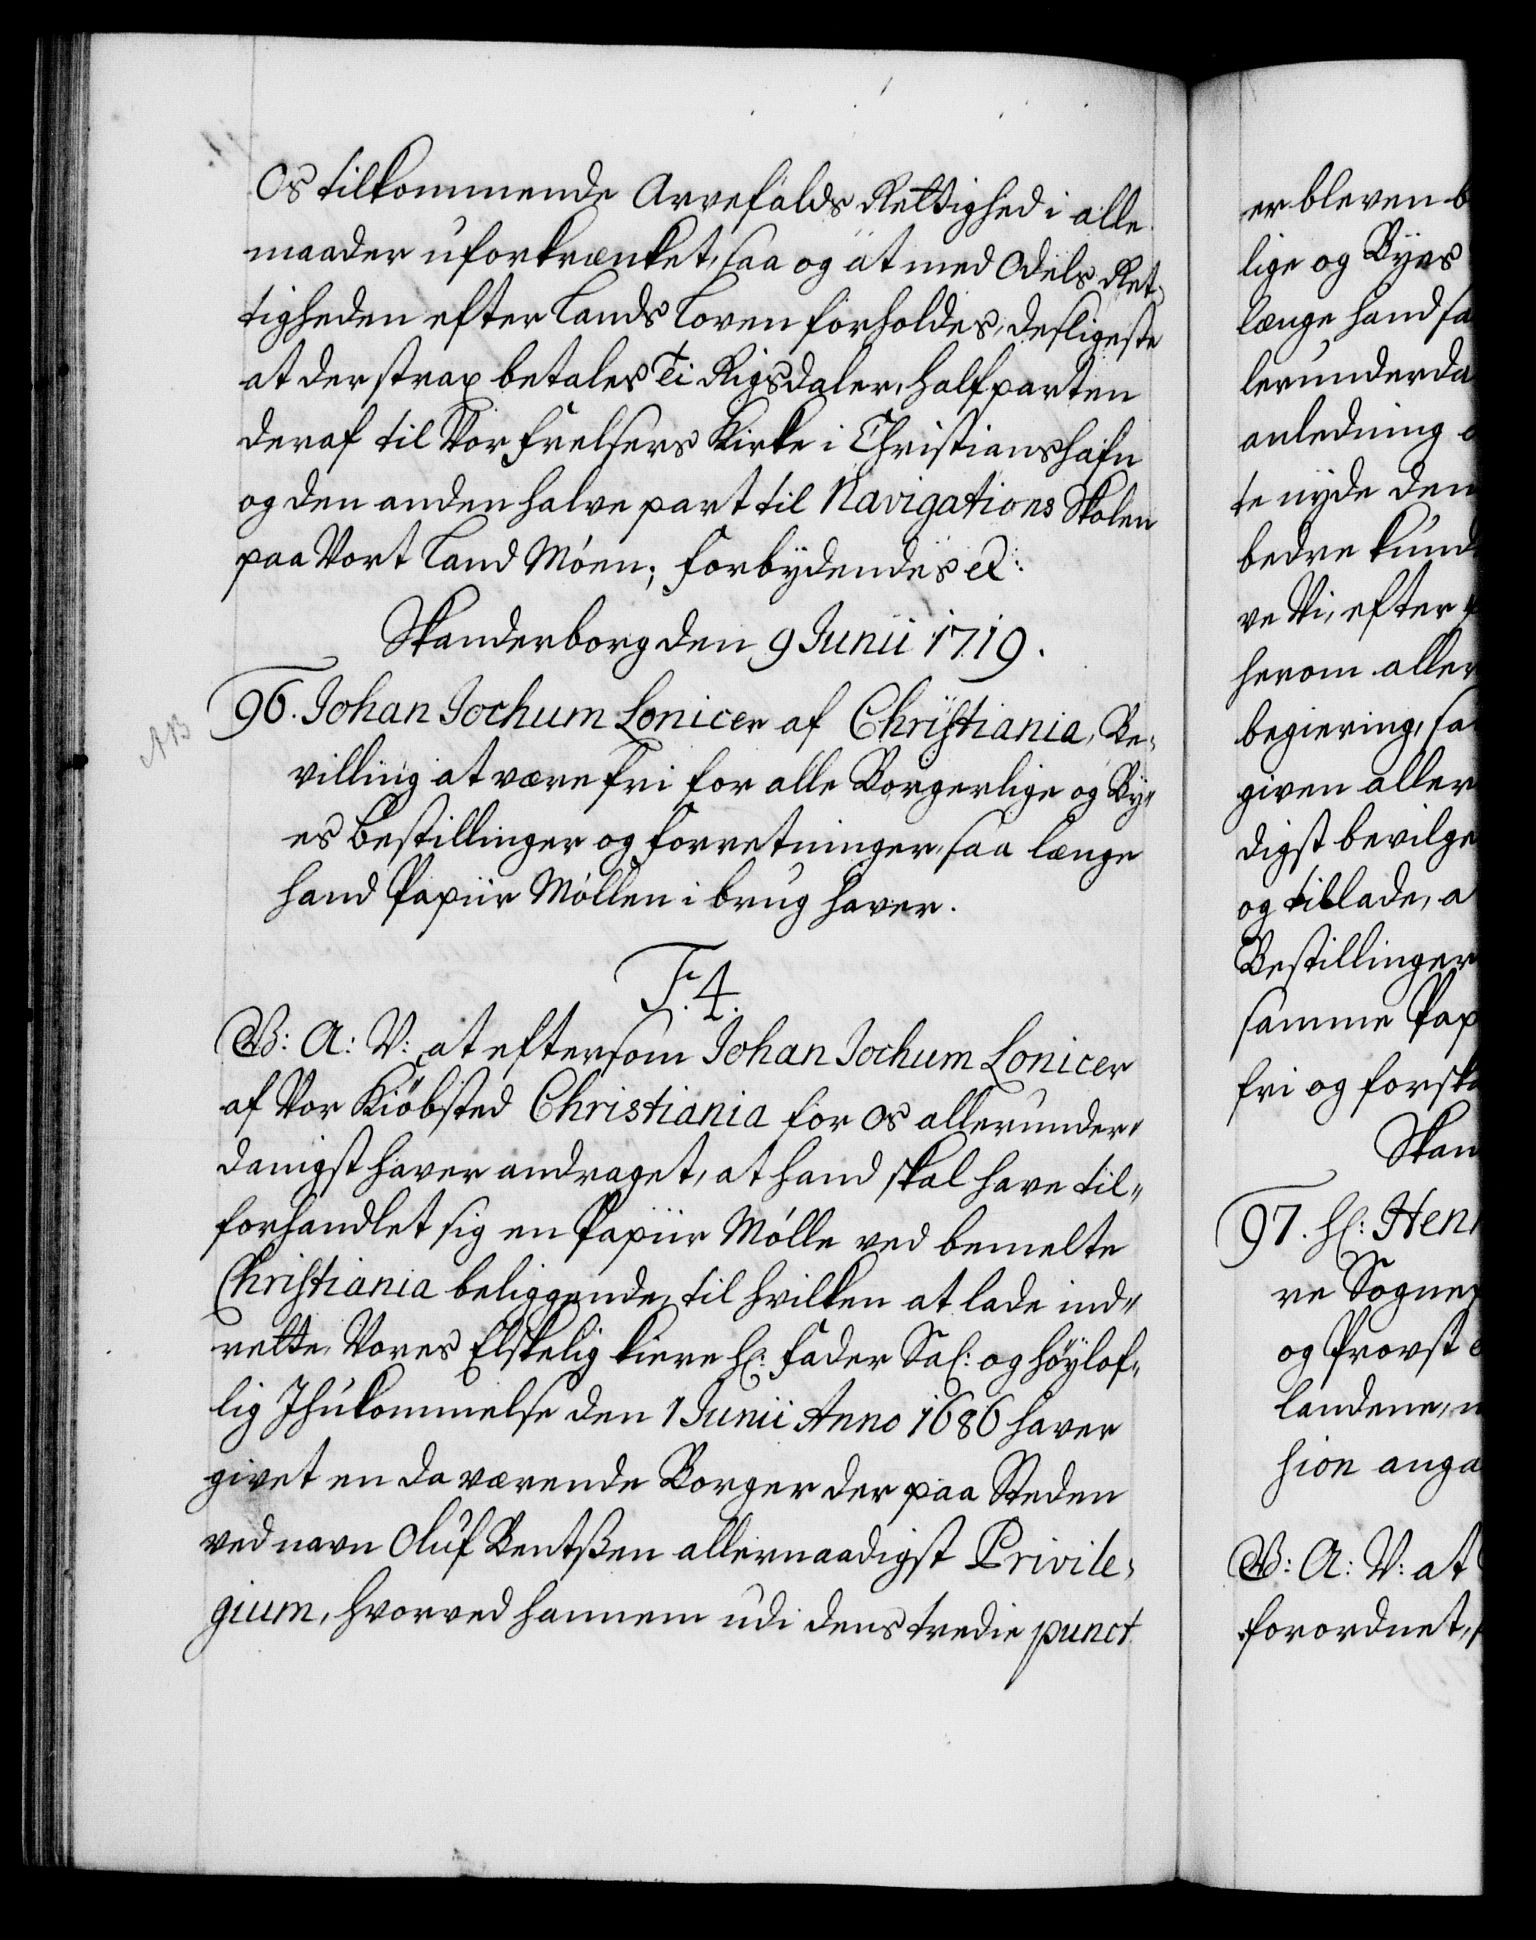 Os tilkommende Arvefalds Rettighed i alle
maader uforkrænket, saa og at med Odels Ret,
tigheden efter Lands Loven forholdes, desligeste
at der strax betales Ti Rigsdaler, halfparten
deraf til Vor Frelsers Kirke i Christianshafn
og den anden halve part til Navigations Skolen
paa Vort Land Móen; Forbydendes etc:
Skanderborg den 9 Junii 1719.
96. Johan Jochum Lonicer af Christiania, Be,
AB
villing at være fri for alle Borgerlige og By„
es Bestillinger og Forretninger, saa længe
hand Papiir Móllen i brug haver.
F. 4.
G: A: V: at eftersom Johan Jochum Lonicer
af Vor Kiöbsted Christiania for os allerunder„
danigst haver andraget, at hand skal have til„
forhandlet sig en Papiir Mólle ved bemelte
Christiania beliggende, til hvilken at lade ind„
rette, Vores Elskelig kiere H: Fader Sal: og höylof,
lig Ihukommelse den 1 Junii Anno 1686 haver
givet en da værende Borger der paa Steden
ved navn Oluf Bentßen allernaadigst Privile,
gium, hvorved hannem udi dens tredie punct
er bleven b
lige og Byes
længe hand sa
lerunderda
anledning
te nyde den
bedre kund
ve Vi, efter
herom aller
begiering, sa
given aller
digst bevilge
og tillade, a
Bestillinger
samme Pap
fri og forsk
Skan
97. H: Hen
re Sogne
og Provst
landene,
sion anga
G: A: V: at
forordnet,